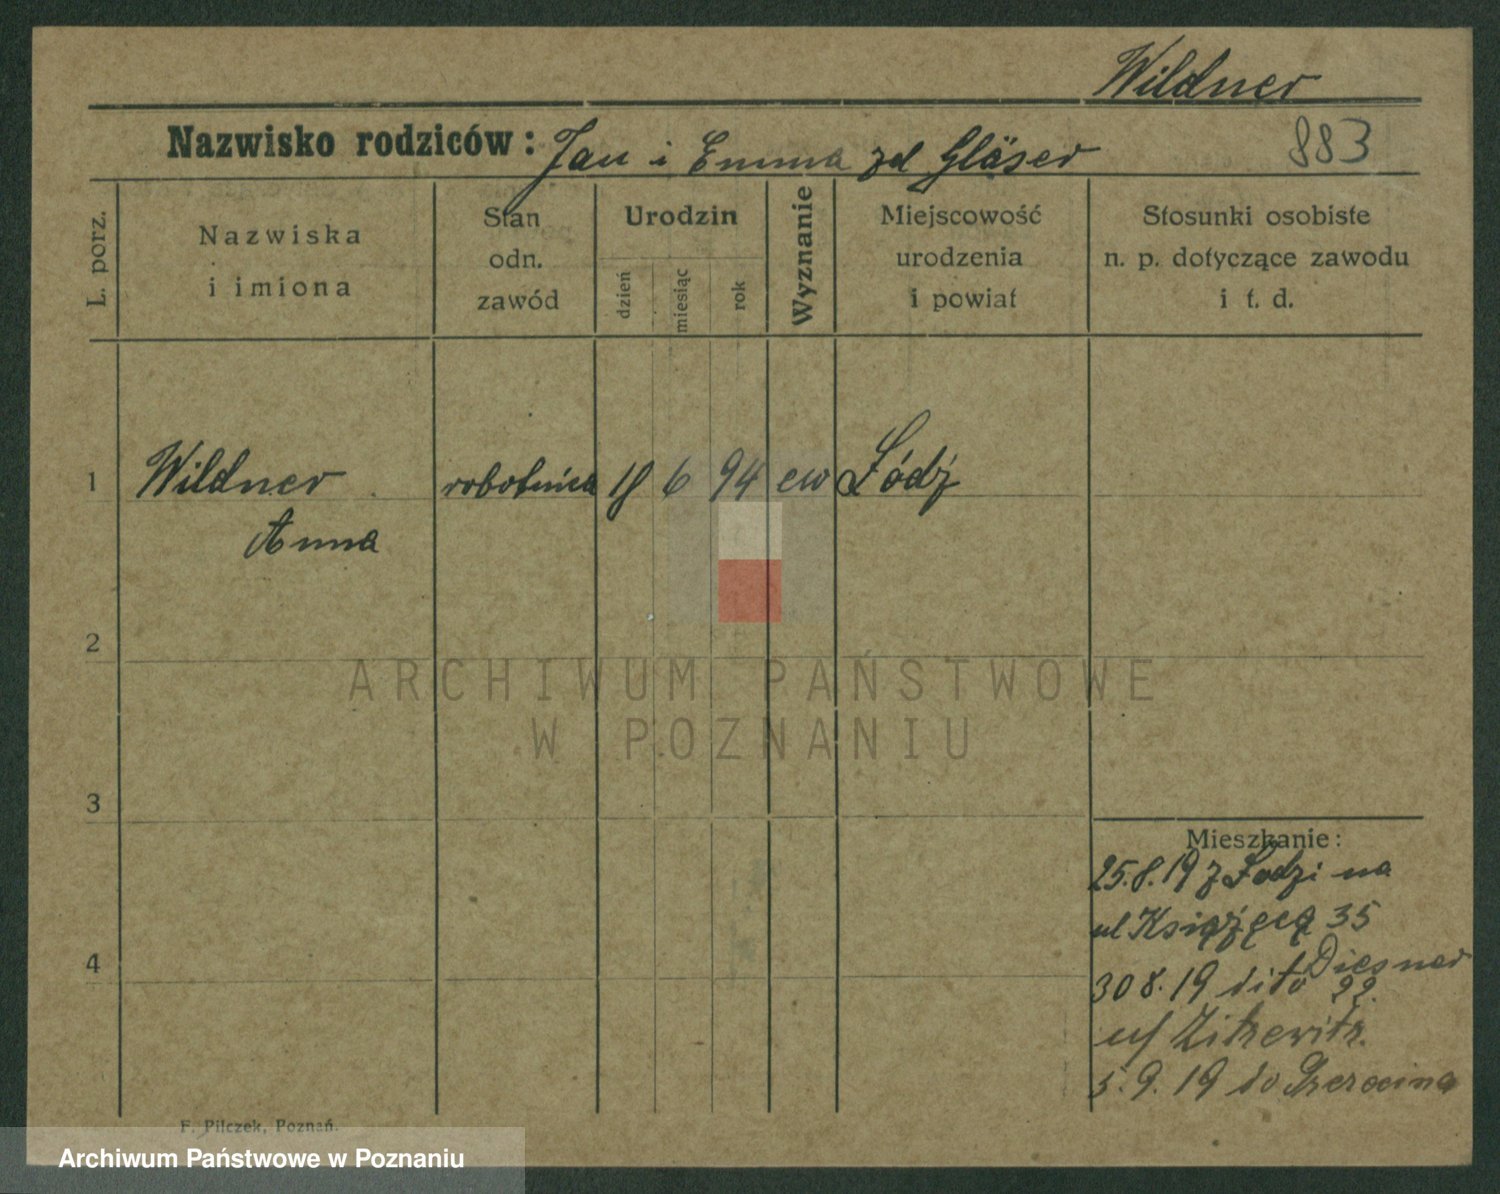 Wildner
Nazwisko rodziców: Jan i Emma zd Gläser
883
L. porz.
Nazwiska
i imiona
Stan
odn.
zawód
Urodzin
dzień
miesiąc
rok
Wyznanie
Miejscowość
urodzenia
i powiat
Stosunki osobiste
n. p. dotyczące zawodu
i t. d.
1
Wildner
Anna
robotnica
18
6
94
ew
Łódź
2
3
4
Mieszkanie:
25.8.19 z Łodzi na
ul Książęcą 35
Diesner
30 8.19 dito 22.
5.9.19 do
F. Pilczek, Poznań.
ARCHIWUM PAŃSTWOWE
W POZNANIU
Archiwum Państwowe w Poznaniu